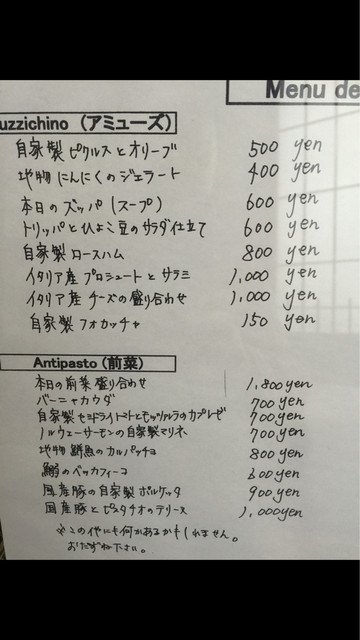 Menu de
uzzichino (アミューズ)
自家製ピクルスとオリーブ 500 yen
地物にんにくのジェラート 400 yen
本日のズッパ(スープ) 600 yen
トリッパとひよこ豆のサラダ仕立て 600 yen
自家製ロースハム 800 yen
イタリア産 プロシュートとサラミ 1,000 yen
イタリア産 チーズの盛り合わせ 1,000 yen
自家製フォカッチャ 150 yen
Antipasto (前菜)
本日の前菜盛り合わせ 1,800yen
バーニャカウダ 700yen
自家製セミドライトマトとモッツァレラのカプレーゼ 700yen
ノルウェーサーモンの自家製マリネ 700yen
地物鮮魚のカルパッチョ 800yen
鰯のベッカフィーコ 600yen
国産豚の自家製ポルケッタ 900yen
国産豚とピスタチオのテリーヌ 1,000yen
※この他にも何かあるかもしれません。
おたずね下さい。